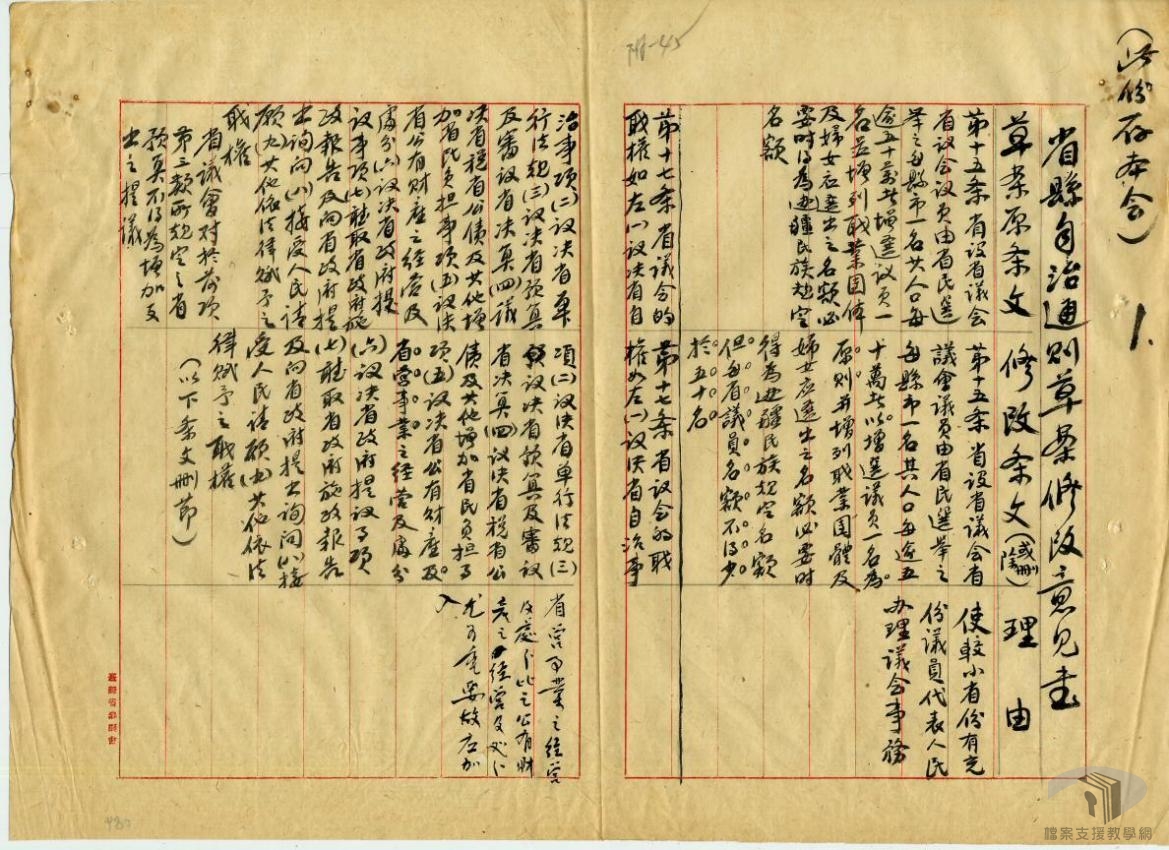 (此份存本会)
1.
省縣自治通則草案修改意見書
草案原条文
修改条文(或刪除)
理由
第十五条 省设省議会
省议会议员由省民選
举之每縣市一名其人口每
逾五十万者增選议員一
名並增列職業团体
及婦女应選出之名額必
要时得為边疆民族規定
名額
第十五条 省设省議会省
議會議員由省民選举之
每縣市一名其人口每逾五
十萬者以增選議員一名為
原則并增列職業团體及
婦女应選出之名額必要时
得為边疆民族規定名額
但每省議員名額不得少
於五十名
使較小省份有充
份議員代表人民
办理議会事務
第十七条 省议会的
职权如左(一)议决省自
治事项(二)议决省单
行法規(三)议决省預算
及審议省决算(四)議
决省稅省公债及其他增
加省民負担事項(五)议决
省公有财產之经营及
處分(六)议决省政府提
议事項(七)聽取省政府施
政報告及向省政府提
出詢问(八)接受人民請
願(九)其他依法律賦予之
职權
省議會对於前項
第三款所規定之省
預算不得為增加支
出之提議
第十七条 省议会的职
權如左(一)议决省自治事
項(二)议决省单行法規(三)
议决省預算及審议
省决算(四)议决省稅省公
债及其他增加省民負担事
項(五)议决省公有财產及
省营事業之经营及處分
(六)议决省政府提议事項
(七)聽取省政府施政報告
及向省政府提出詢问(八)接
受人民請願(九)其他依法
律賦予之職權
(以下条文刪节)
省营事業之经营
及處分比之公有财
產之经营及處分
尤为重要故应加
入
臺灣省參議會
檔案支援教學網